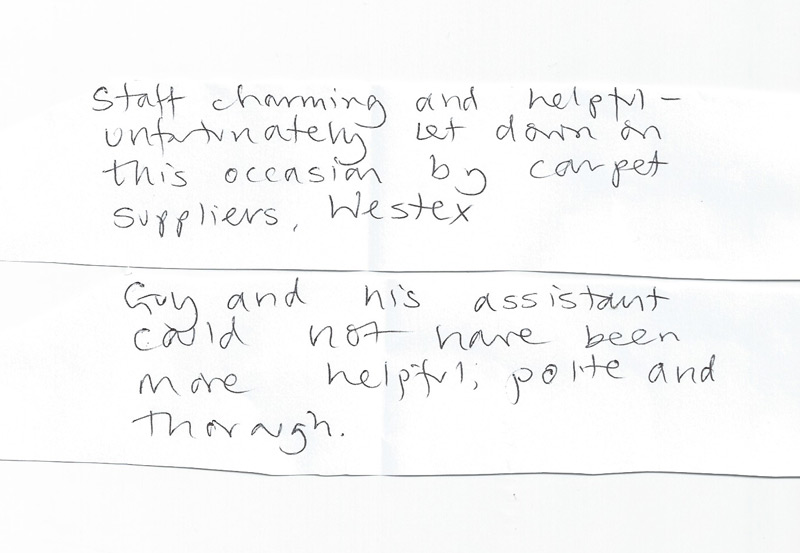 Staff charming and helpful –
unfortunately let down on
this occasion by carpet
suppliers, Westex
Guy and his assistant
could not have been
more helpful; polite and
thorough.